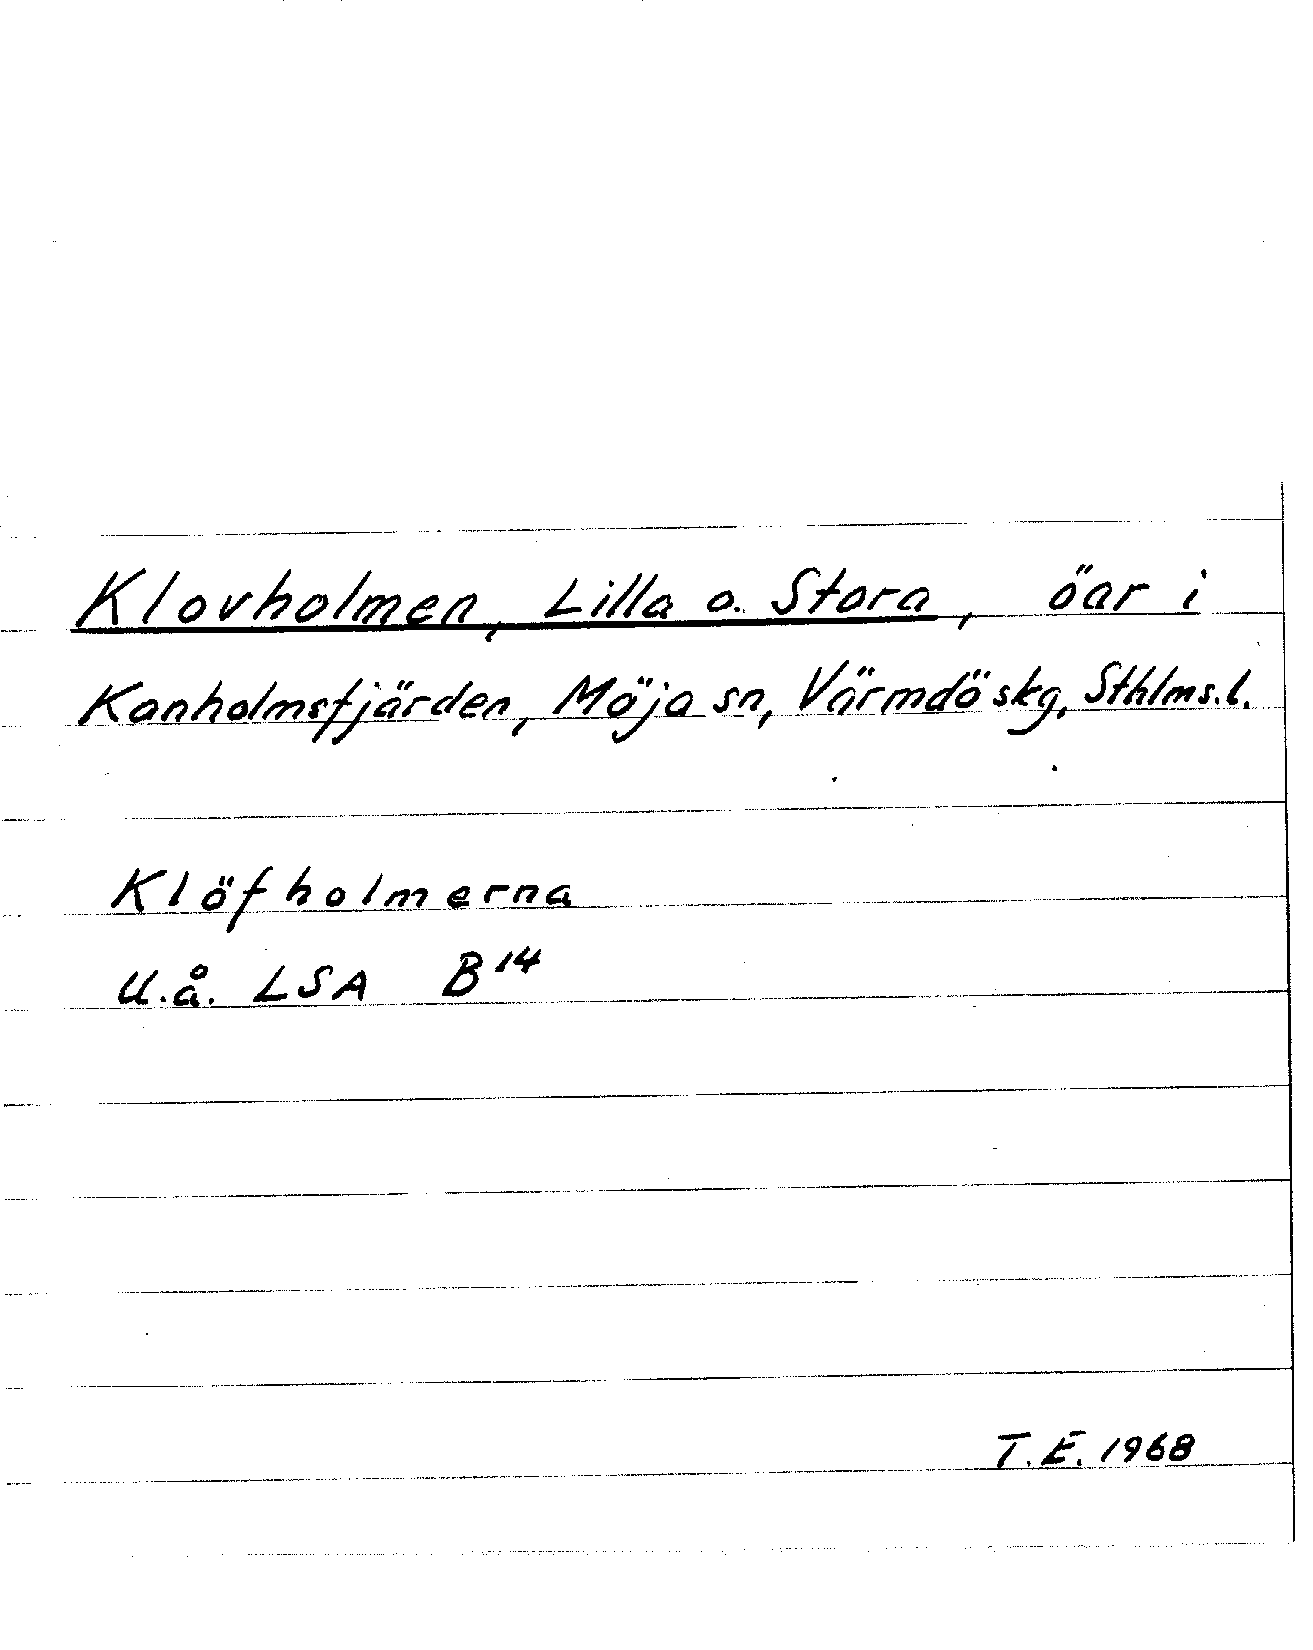 Klovholmen, Lilla o. Stora, öar i
Kanholmsfjärden, Möja sn, Värmdö skg, Sthlms. l.
Klöfholmerna
U.å. LSA B14
T.E. 1968